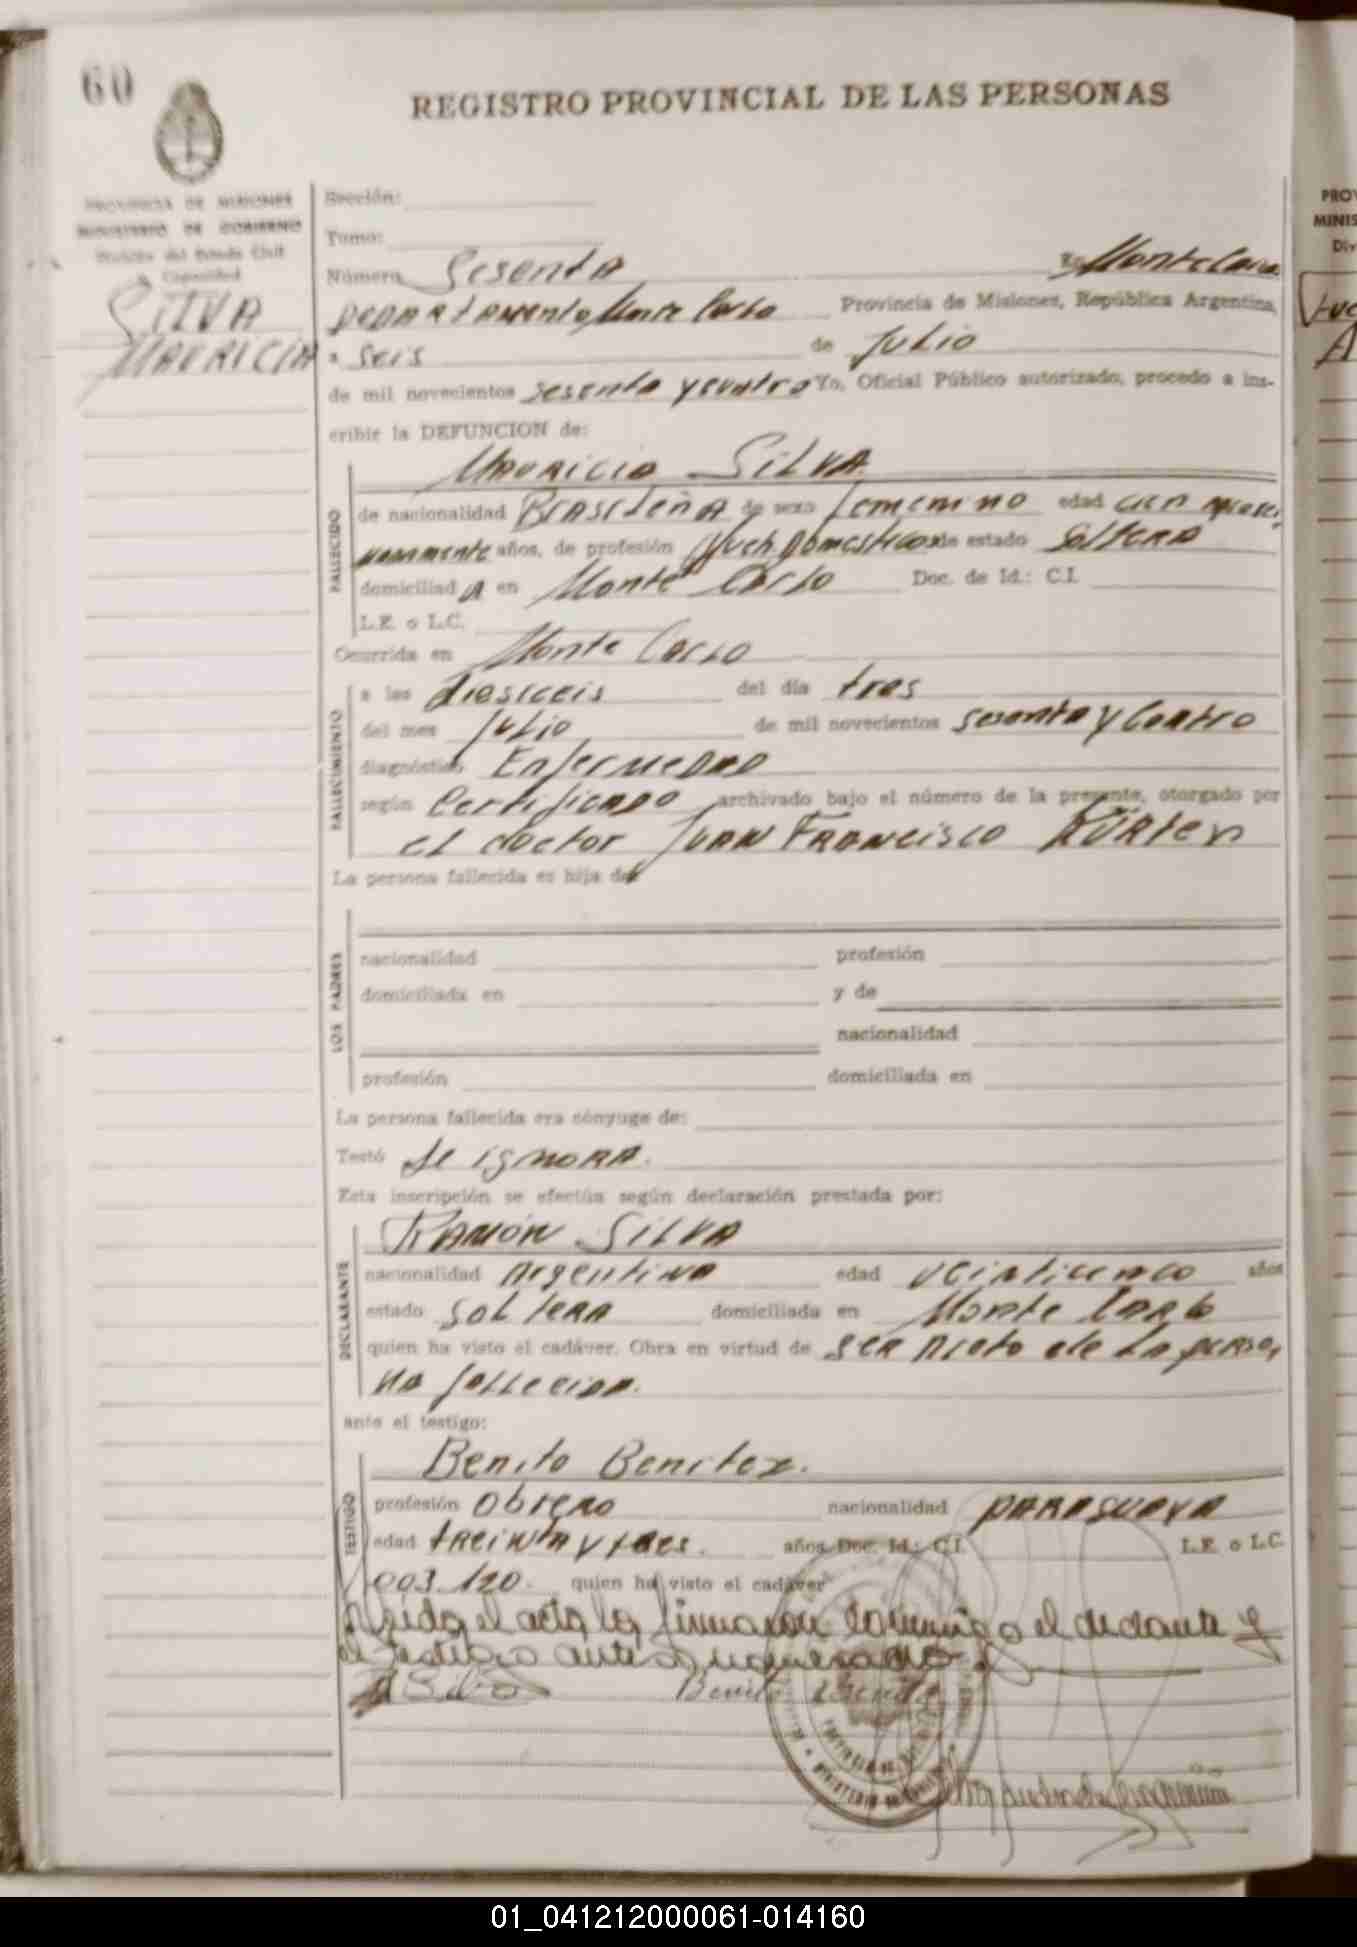 60
REGISTRO PROVINCIAL DE LAS PERSONAS
PROVINCIA DE MISIONES
MINISTERIO DE GOBIERNO
División del Estado Civil
y Capacidad
SILVA
MAURICIA
Sección:
Tomo:
Número Sesenta En Monte Carlo
Departamento Monte Carlo Provincia de Misiones, República Argentina,
a seis de Julio
de mil novecientos sesenta y cuatro Yo, Oficial Público autorizado, procedo a ins-
cribir la DEFUNCION de:
Mauricia Silva
FALLECIDO
de nacionalidad Brasileña de sexo femenino edad cien
años, de profesión Queh. Domesticos de estado Soltera
domiciliad a en Monte Carlo Doc. de Id.: C.I.
L.E. o L.C.
Ocurrida en Monte Carlo
FALLECIMIENTO
a las diesiceis del día tres
del mes Julio de mil novecientos sesenta y Cuatro
diagnóstico Enfermedad
según Certificado archivado bajo el número de la presente, otorgado por
el doctor Juan Francisco Kürten
La persona fallecida es hija de
LOS PADRES
nacionalidad profesión
domiciliada en y de
nacionalidad
profesión domiciliada en
La persona fallecida era cónyuge de:
Testó Se ignora.
Esta inscripción se efectúa según declaración prestada por:
Ramón Silva
DECLARANTE
nacionalidad Argentina edad veinticinco años
estado soltera domiciliada en Monte Carlo
quien ha visto el cadáver. Obra en virtud de ser nieto de la perso,
na fallecida.
ante el testigo:
Benito Benitez.
TESTIGO
profesión Obrero nacionalidad paraguaya
edad treinta y tres. años Doc. Id.: C.I. L.E. o L.C.
003.120. quien ha visto el cadáver
Leida el acta la firmaron conmigo el declarante y
el testigo antes nomenado
Silva Benito Benitez
PROV
MINIS
Div
01_041212000061-014160